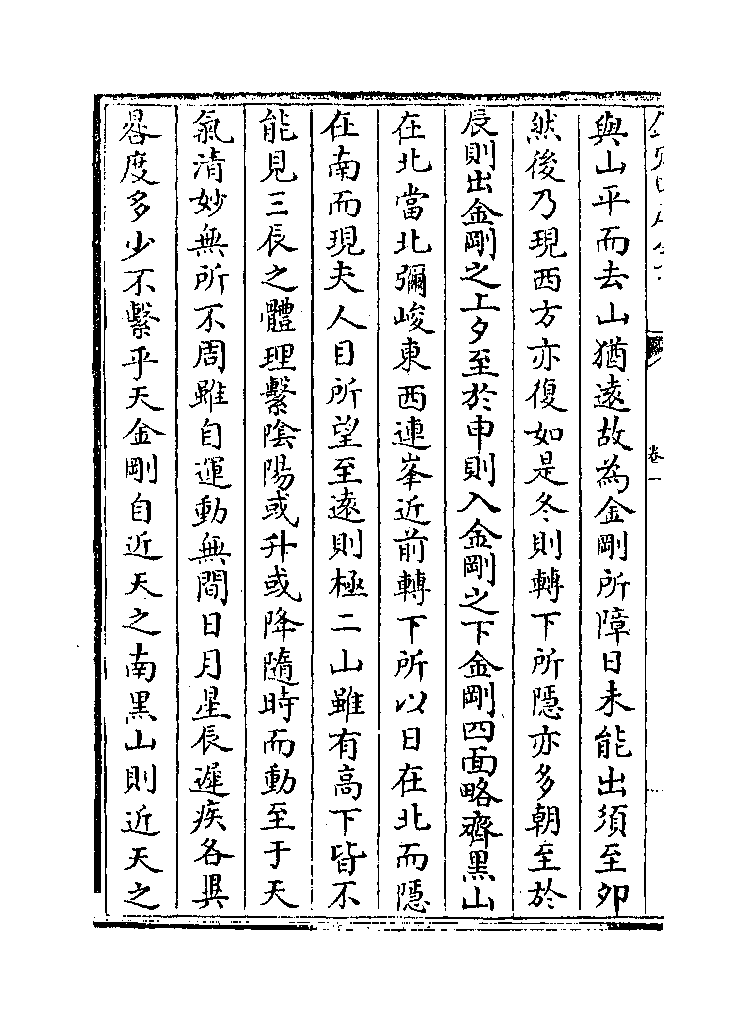 卷一
與山平而去山猶遠故為金剛所障日未能出須至卯
然後乃現西方亦復如是冬則轉下所隱亦多朝至於
辰則出金剛之上夕至於申則入金剛之下金剛四面略齊黑山
在北當北彌峻東西連峯近前轉下所以日在北而隱
在南而現夫人目所望至遠則極二山雖有高下皆不
能見三辰之體理繫陰陽或升或降隨時而動至于天
氣清妙無所不周雖自運動無間日月星辰遲疾各異
晷度多少不繫乎天金剛自近天之南黑山則近天之